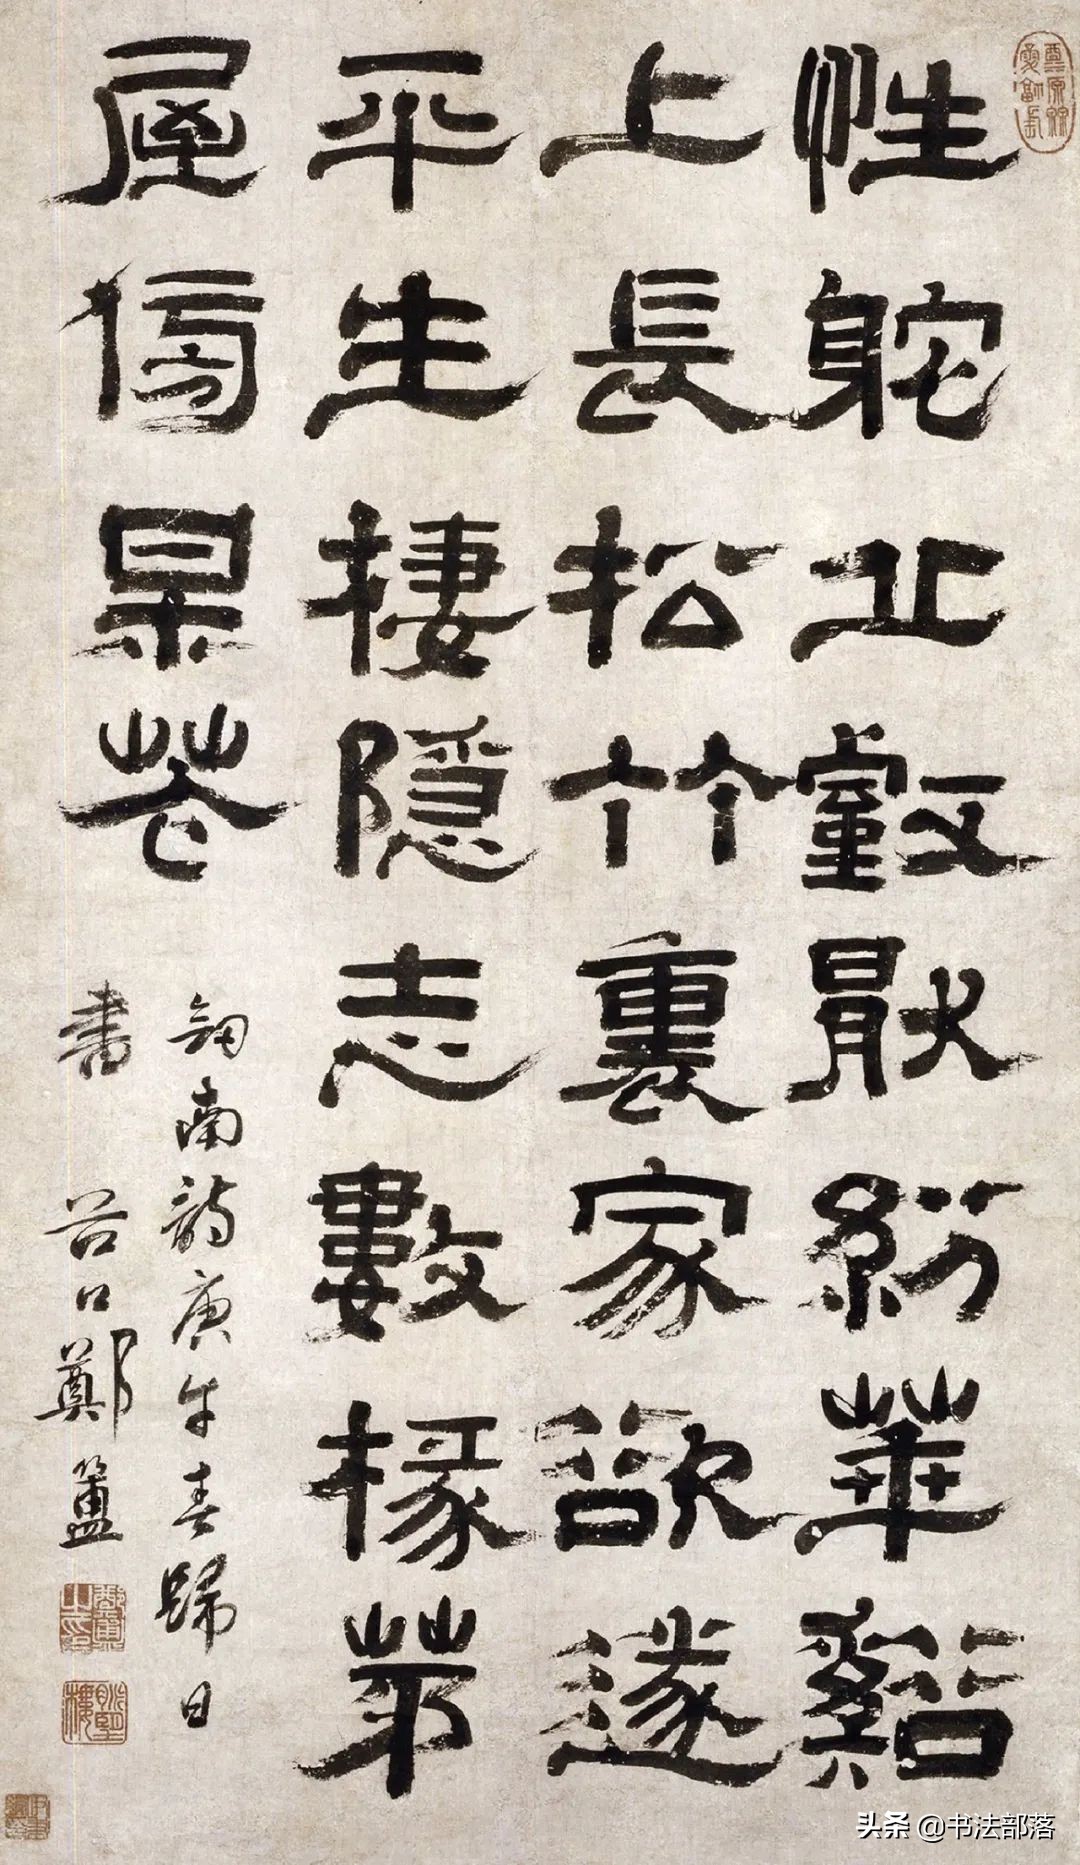 性躭丘壑厭紛華谿
上長松竹裏家欲遂
平生棲隱志數椽茅
屋傍杲花
劍南詩庚午春歸日
書 谷口鄭簠
鄭簠之印
头条 @书法部落